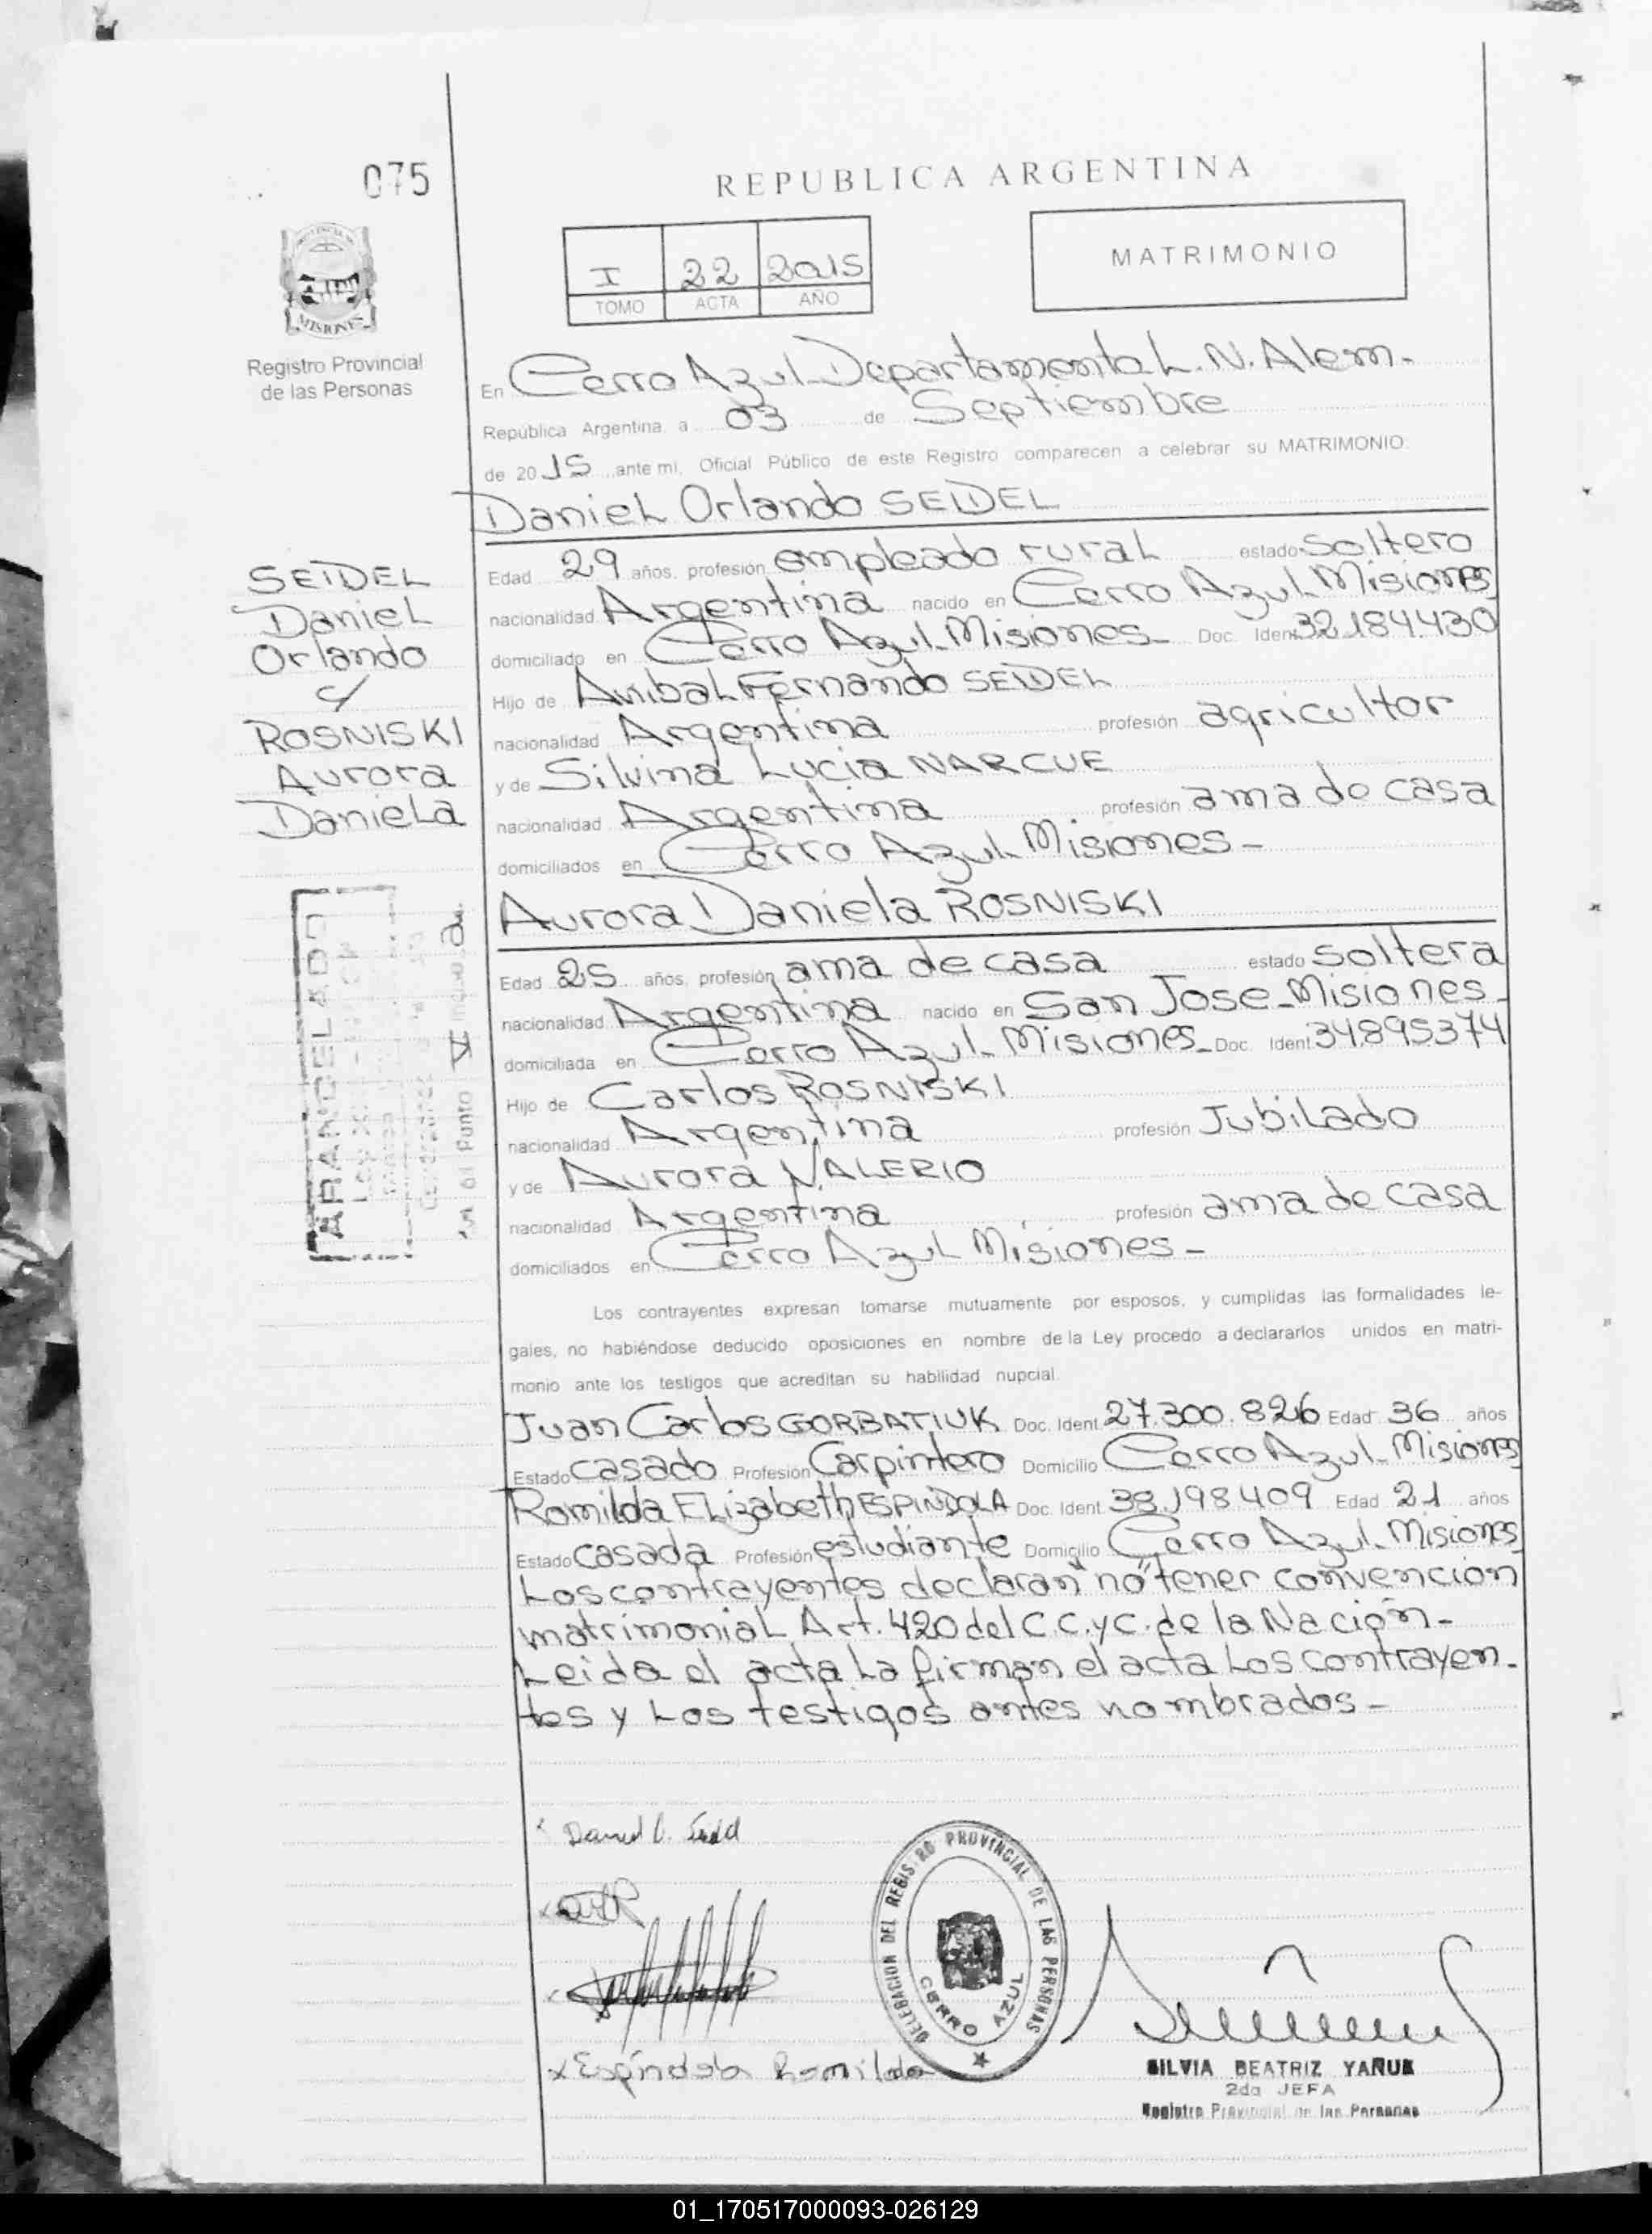 075
REPUBLICA ARGENTINA
I 22 2015
TOMO ACTA AÑO
MATRIMONIO
MISIONES
Registro Provincial
de las Personas
En Cerro Azul Departamental L. N. Alem.
República Argentina, a 03 de Septiembre
de 2015 ante mi, Oficial Público de este Registro comparecen a celebrar su MATRIMONIO:
Daniel Orlando SEIDEL
SEIDEL
Daniel
Orlando
y
ROSNISKI
Aurora
Daniela
Edad 29 años, profesión empleado rural estado soltero
nacionalidad Argentina nacido en Cerro Azul Misiones
domiciliado en Cerro Azul Misiones - Doc. Ident. 32.184.430
Hijo de Anibal Fernando SEIDEL
nacionalidad Argentina profesión agricultor
y de Silvina Lucia NARCUE
nacionalidad Argentina profesión ama de casa
domiciliados en Cerro Azul Misiones -
Aurora Daniela ROSNISKI
ARANCELADO
Edad 25 años, profesión ama de casa estado soltera
nacionalidad Argentina nacido en San Jose - Misiones -
domiciliada en Cerro Azul - Misiones - Doc. Ident. 34.895.374
Hijo de Carlos ROSNISKI
nacionalidad Argentina profesión Jubilado
y de Aurora VALERIO
nacionalidad Argentina profesión ama de casa
domiciliados en Cerro Azul Misiones -
Los contrayentes expresan tomarse mutuamente por esposos, y cumplidas las formalidades le-
gales, no habiéndose deducido oposiciones en nombre de la Ley procedo a declararlos unidos en matri-
monio ante los testigos que acreditan su habilidad nupcial.
Juan Carlos GORBATIUK Doc. Ident. 27.300.826 Edad 36 años
Estado casado Profesión Carpintero Domicilio Cerro Azul - Misiones
Romilda Elizabeth ESPINDOLA Doc. Ident. 38.198.409 Edad 21 años
Estado casada Profesión estudiante Domicilio Cerro Azul - Misiones
Los contrayentes declaran "no" tener convencion
matrimonial Art. 420 del C.C. y C. de la Nación -
Leida el acta la firman el acta los contrayen-
tes y los testigos antes nombrados -
x Daniel O. Seidel
x Espíndola Romilda
DELEGACION DEL REGISTRO PROVINCIAL DE LAS PERSONAS
CERRO AZUL
SILVIA BEATRIZ YAÑUK
2da JEFA
Registro Provincial de las Personas
01_170517000093-026129